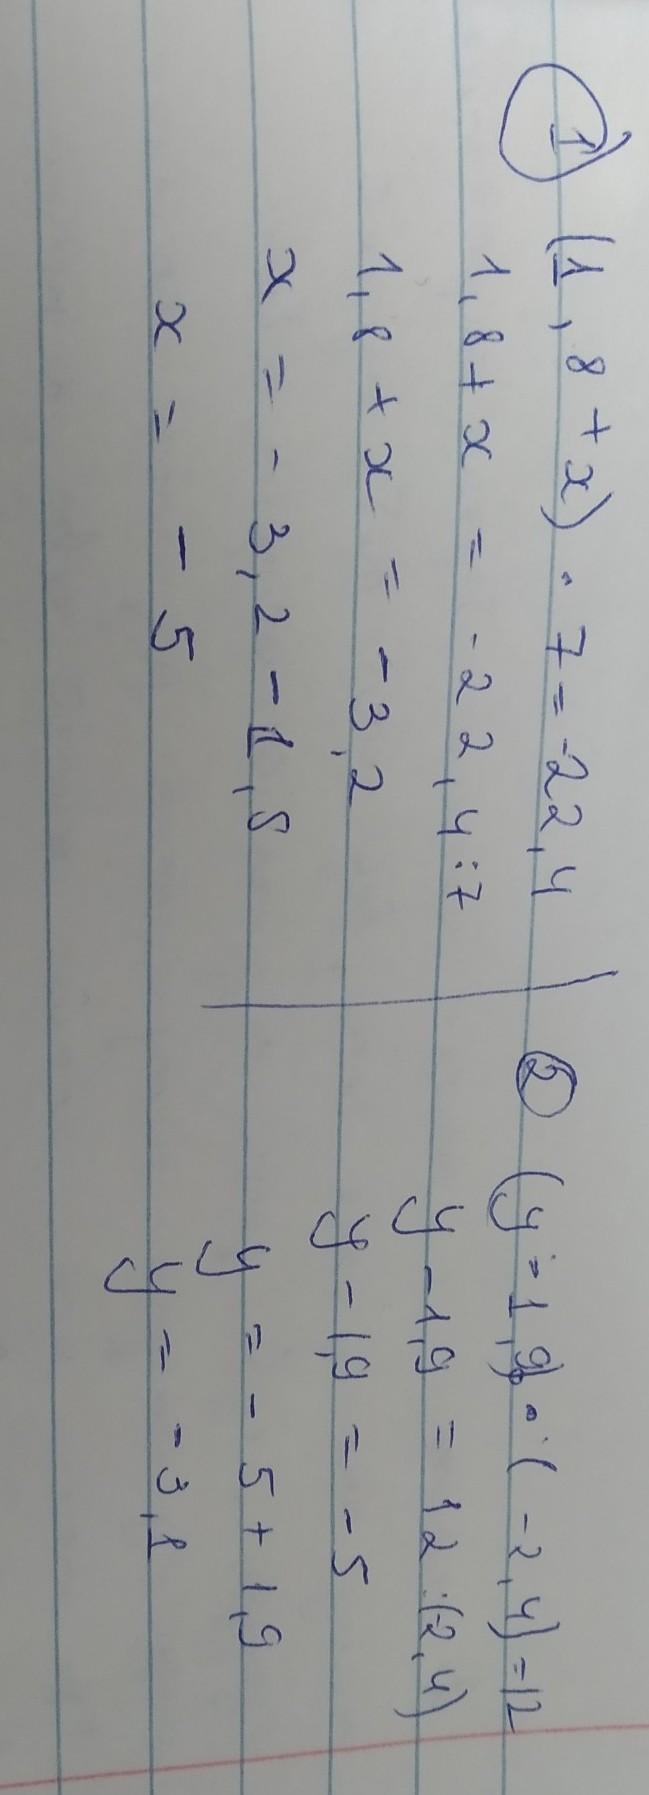 1) (1,8+x)·7=-22,4
1,8+x=-22,4:7
1,8+x=-3,2
x=-3,2-1,8
x=-5
2 (y-1,9)·(-2,4)=12
y-1,9=12:(2,4)
y-1,9=-5
y=-5+1,9
y=-3,1